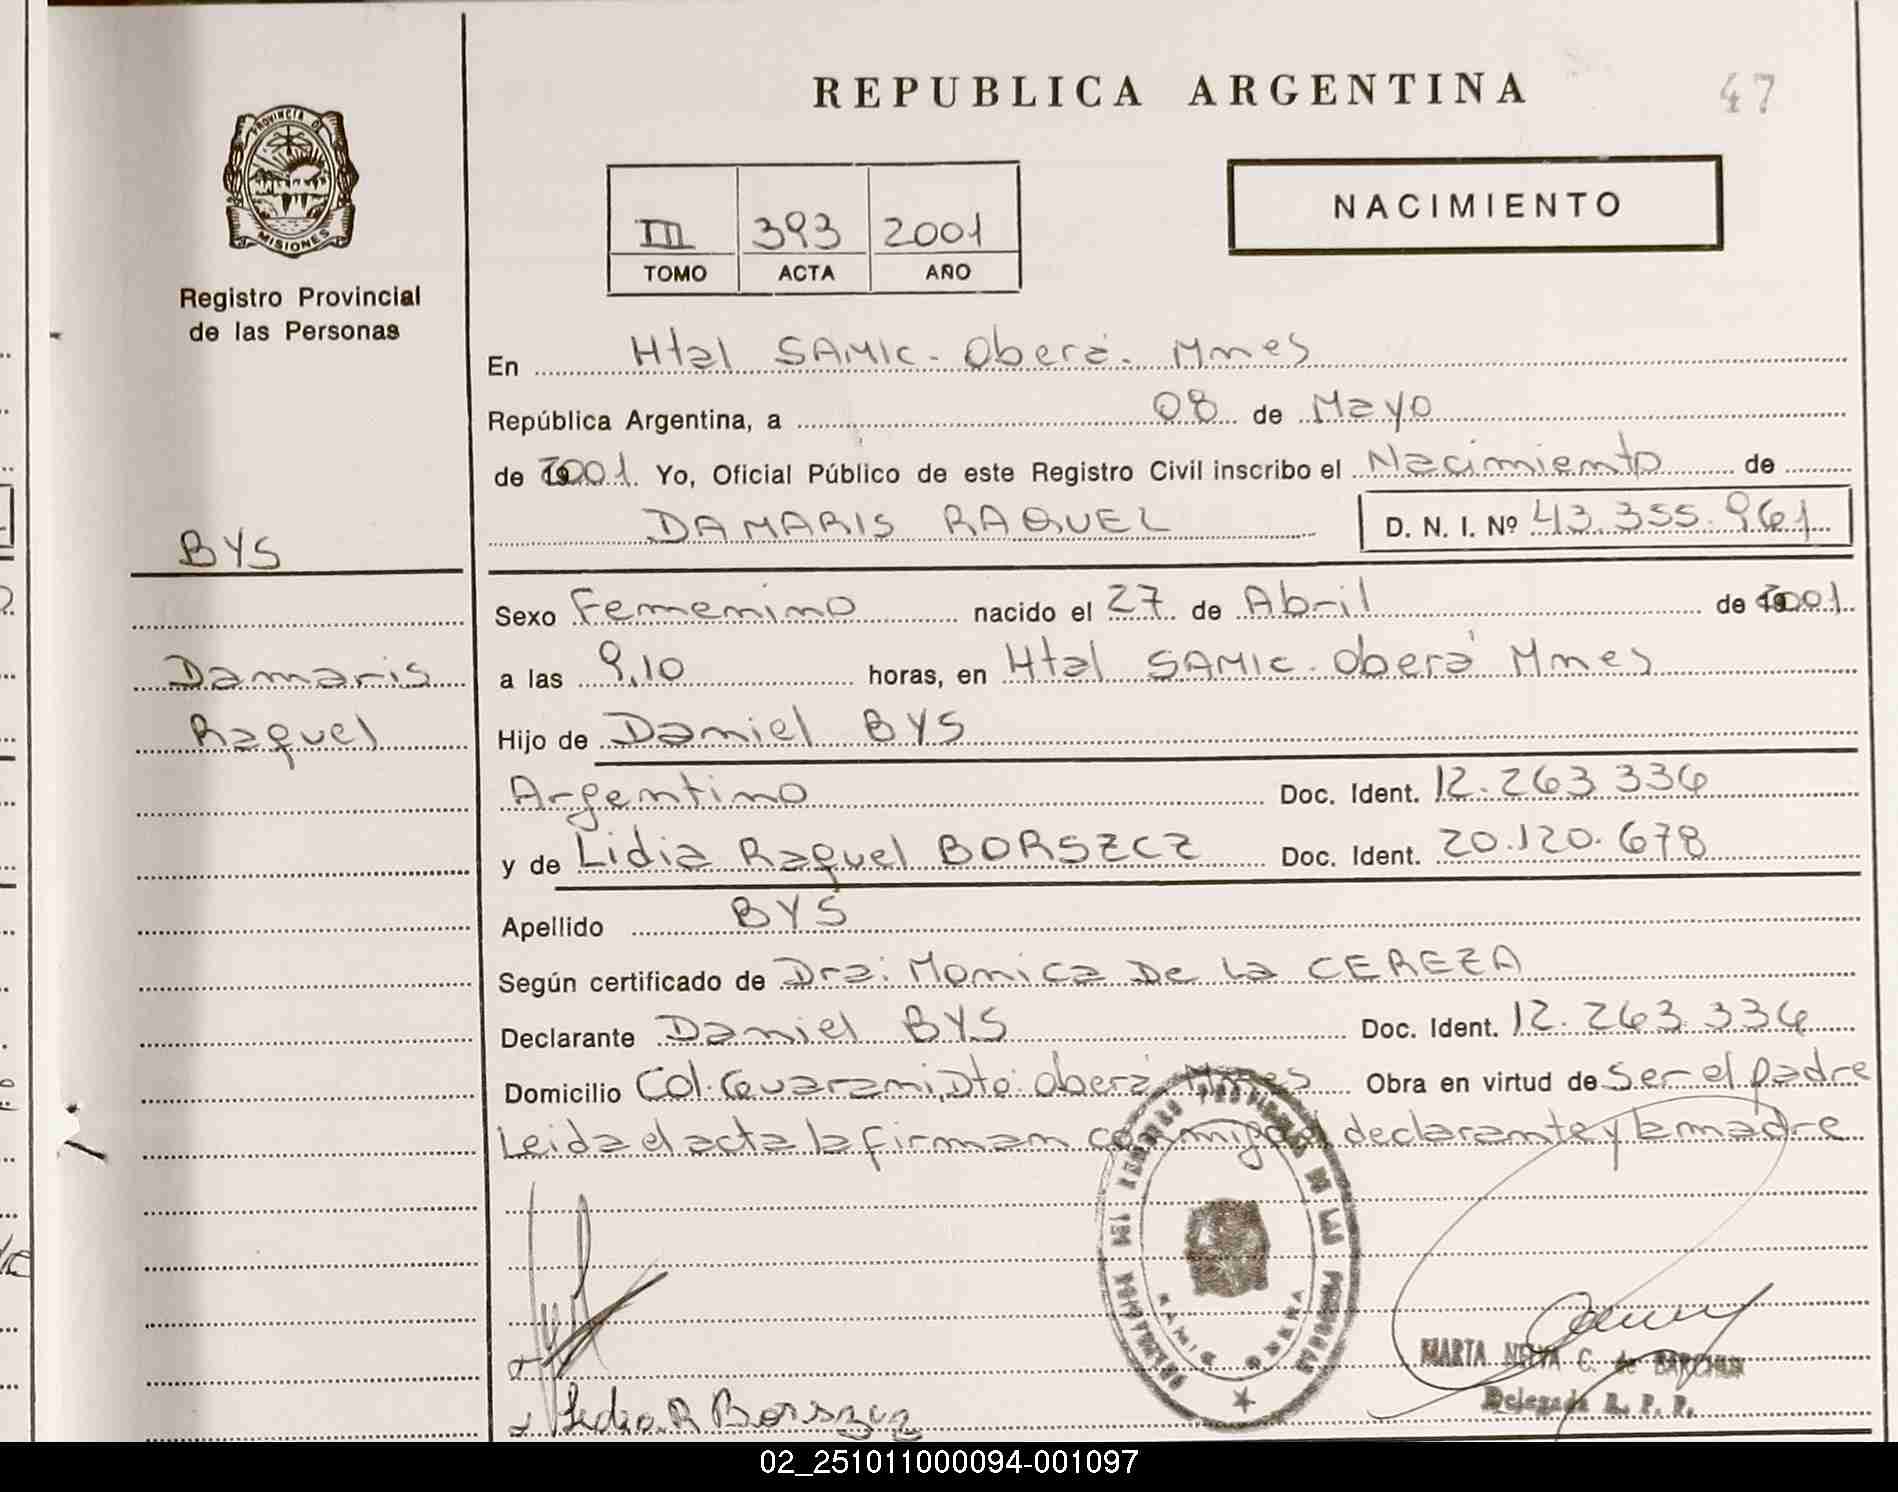 REPUBLICA ARGENTINA
47
PROVINCIA DE
MISIONES
Registro Provincial
de las Personas
III 393 2001
TOMO ACTA AÑO
NACIMIENTO
En Htal SAMIC - Oberá - Mnes
República Argentina, a 08 de Mayo
de 2001. Yo, Oficial Público de este Registro Civil inscribo el Nacimiento de
DAMARIS RAQUEL D. N. I. Nº 43.355.961
BYS
Damaris
Raquel
Sexo Femenino nacido el 27 de Abril de 2001
a las 9,10 horas, en Htal SAMIC - Oberá Mnes
Hijo de Daniel BYS
Argentino Doc. Ident. 12.263.336
y de Lidia Raquel BORSZCZ Doc. Ident. 20.120.678
Apellido BYS
Según certificado de Dra: Monica De La CEREZA
Declarante Daniel BYS Doc. Ident. 12.263.336
Domicilio Col. Guarani, Dto: Oberá Mnes Obra en virtud de Ser el padre
Leida el acta la firman conmigo el declarante y la madre
PROVINCIAL DE LAS PERSONAS
SAMIC OBERA
MARTA NELVA C. de
Delegada R. P. P.
Lidia R Borszcz
02_251011000094-001097